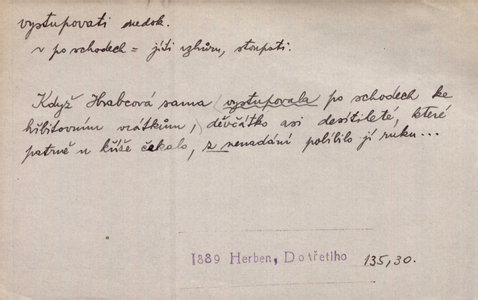 vystupovati nedok.
v po schodech = jíti vzhůru, stoupati.
Když Hrabcová sama vystupovala po schodech ke
hřbitovním vrátkům, děvčátko asi desítileté, které
patrně u kříže čekalo, z nenadání políbilo jí ruku...
1889 Herben, Do třetího 135,30.